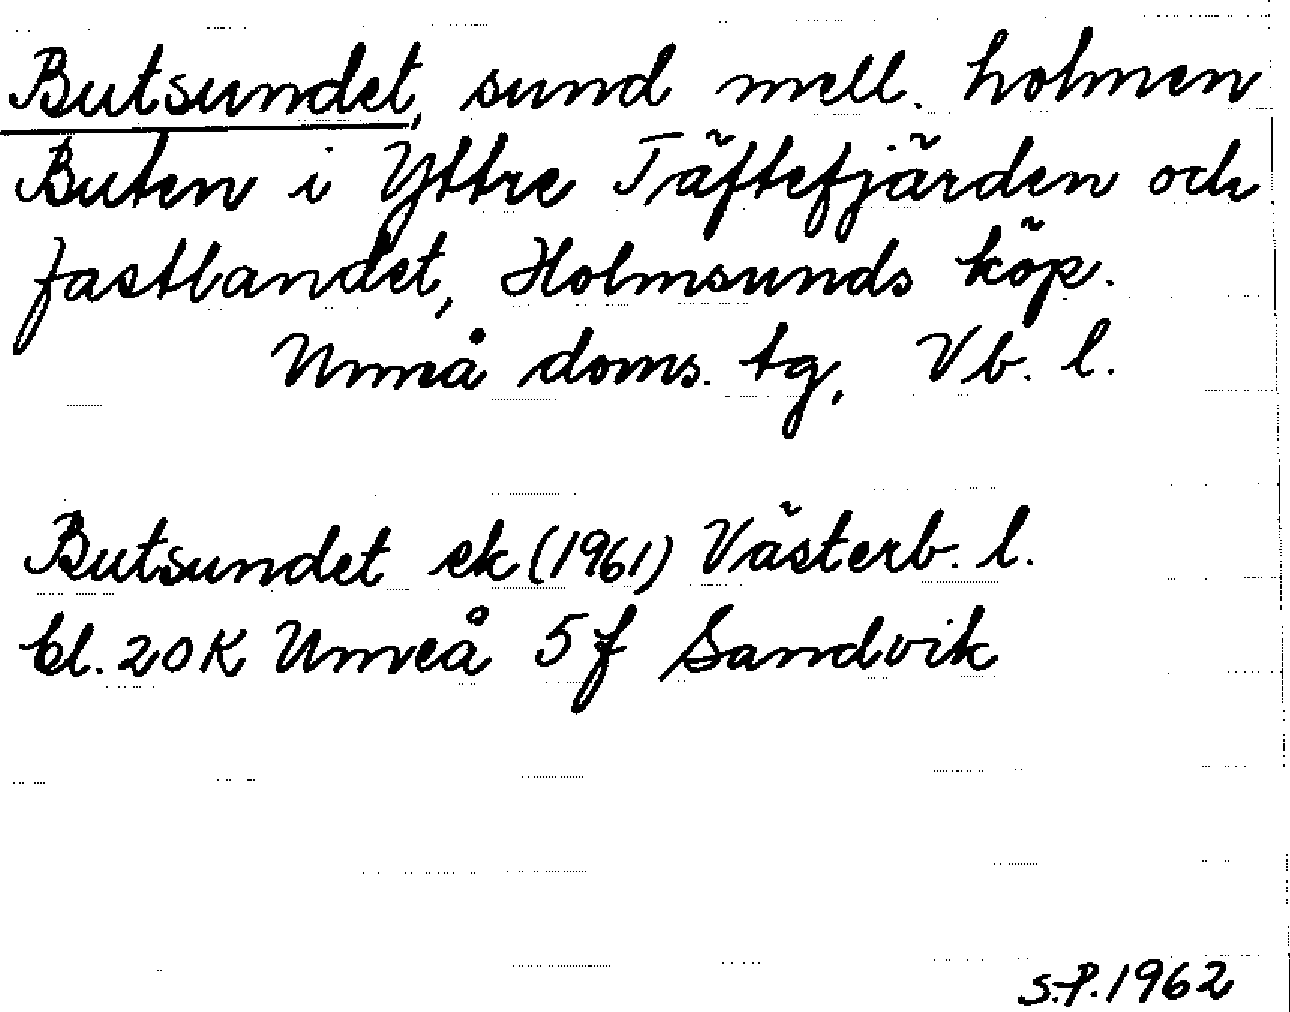 Butsundet, sund mell. holmen
Buten i Yttre Täftefjärden och
fastlandet, Holmsunds köp.
Umeå doms. tg, Vb. l.
Butsundet ek (1961) Västerb. l.
bl. 20K Umeå 5f Sandvik
S.P. 1962